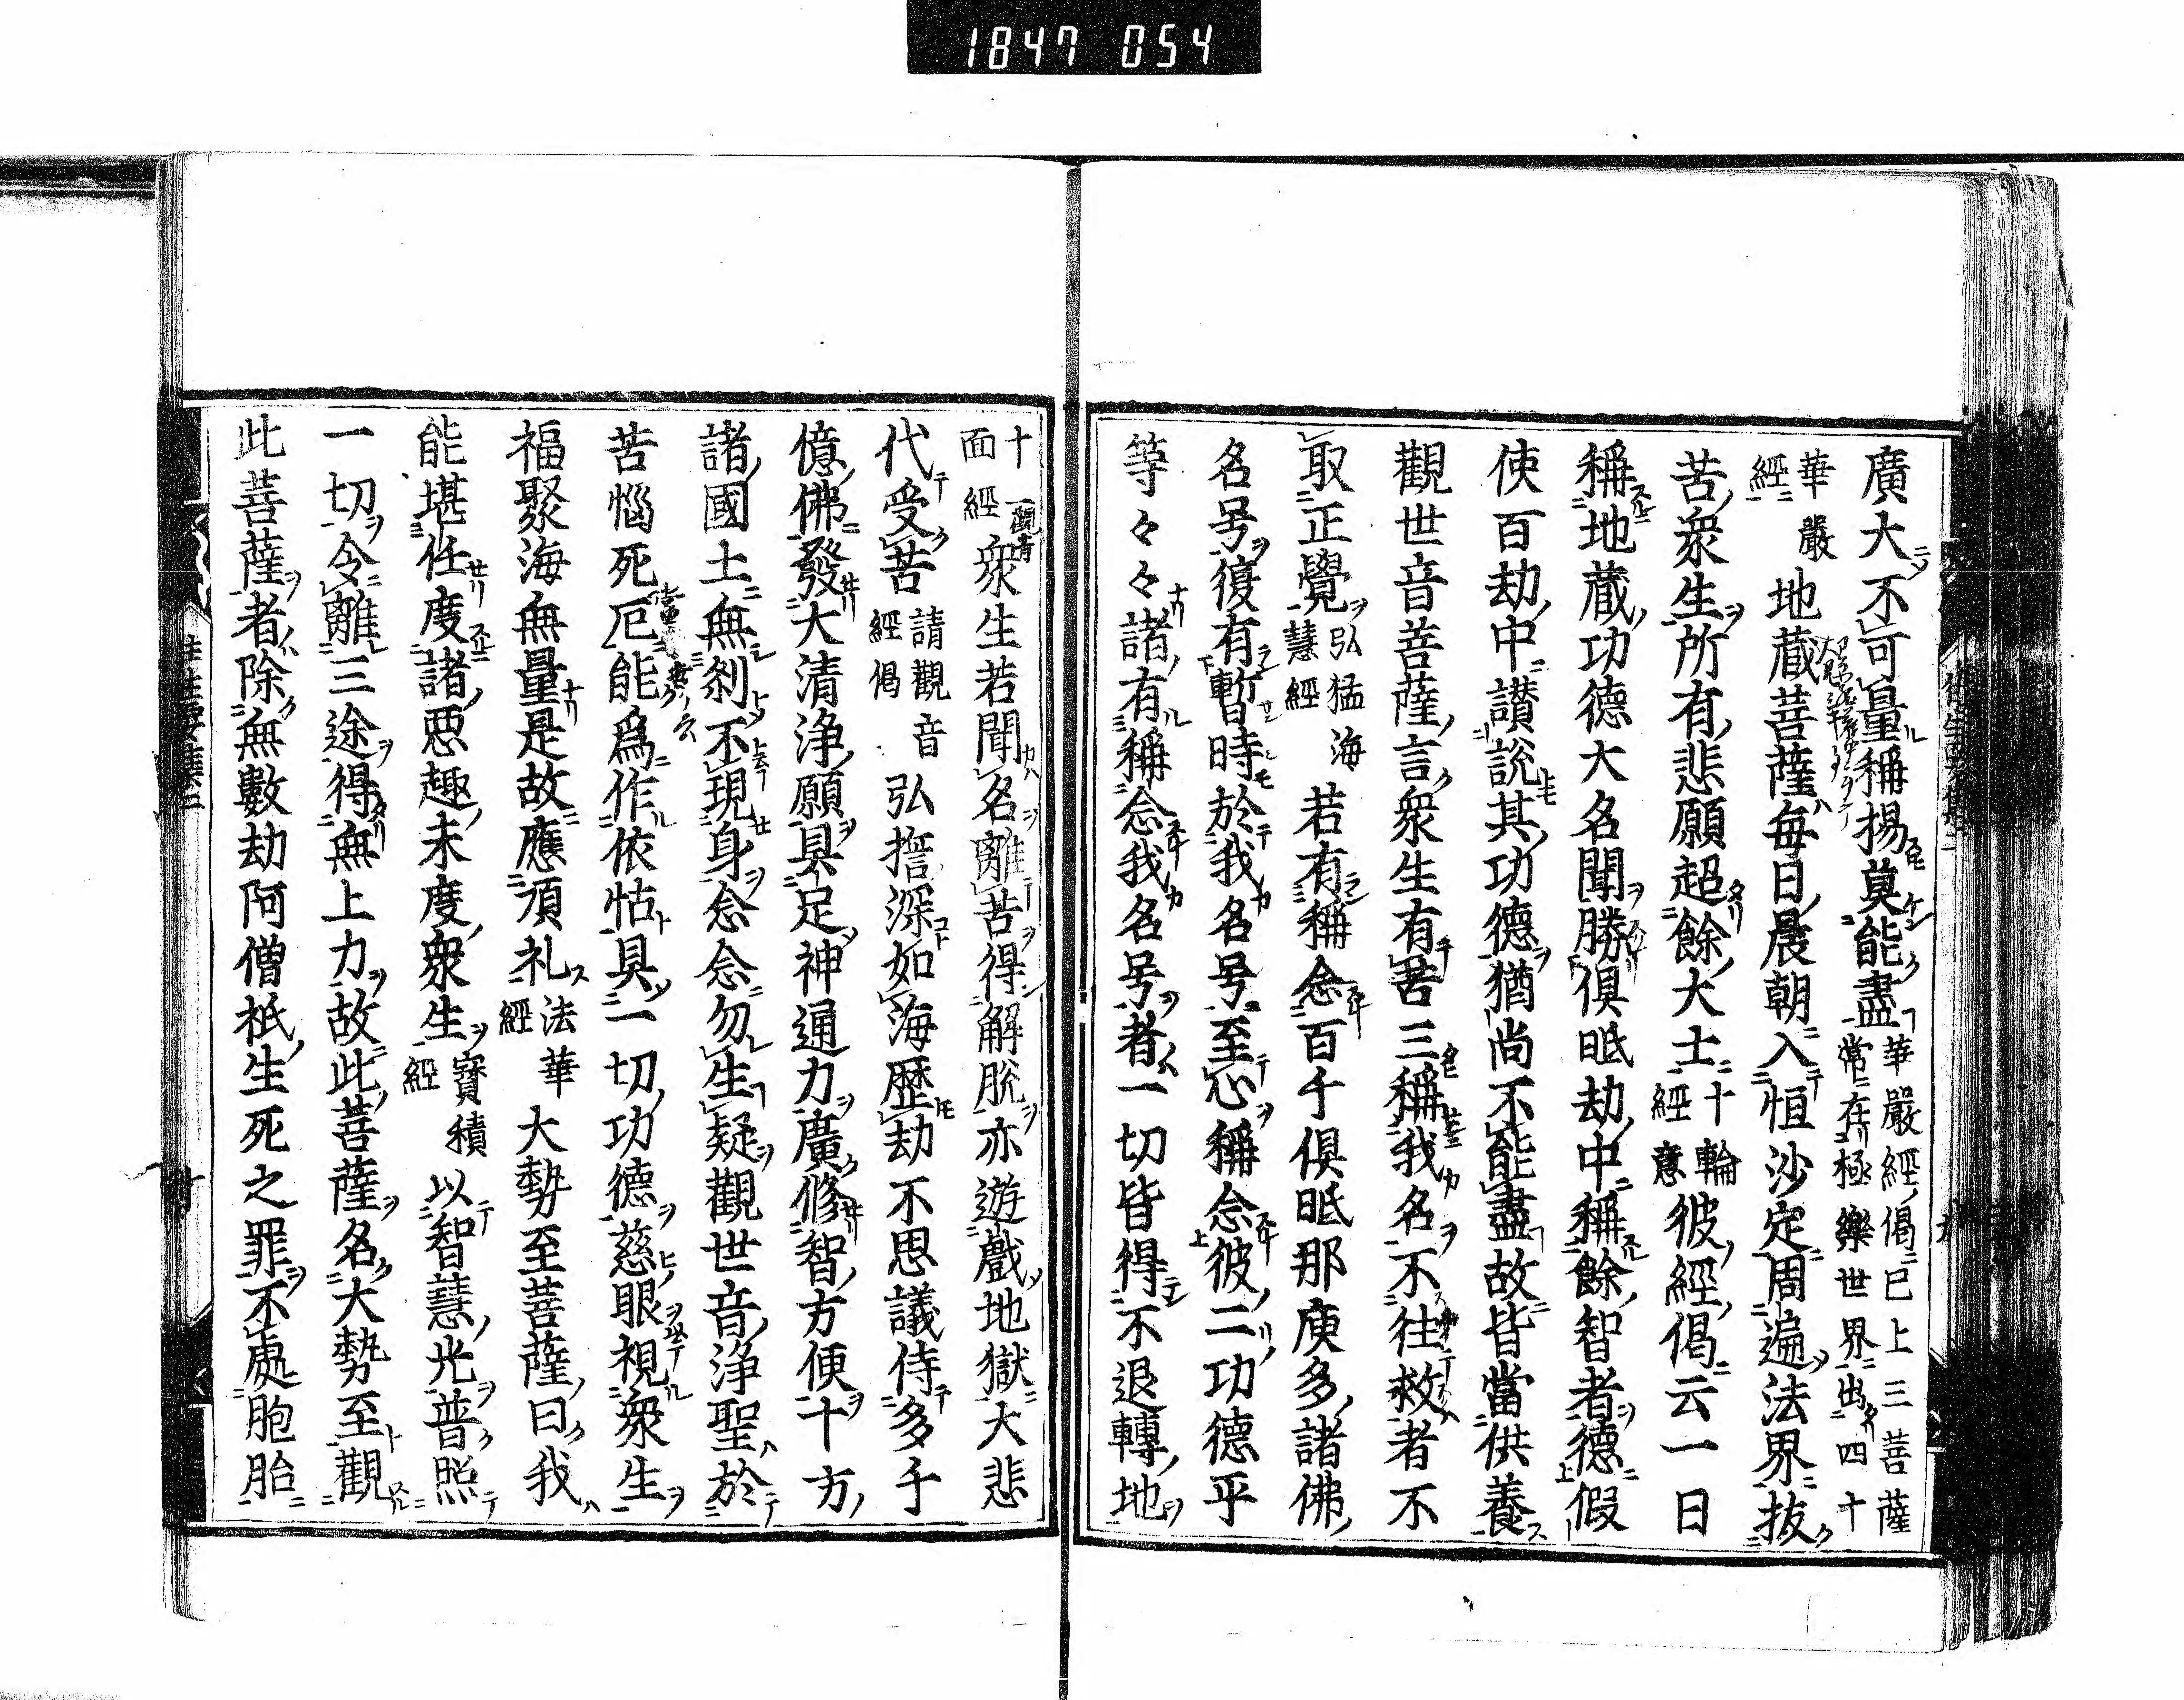 1847 054
廣大不可量稱揚莫能盡華嚴經偈已上三菩薩常在極樂世界出四十
華嚴經地蔵菩薩每日晨朝入恒沙定周遍法界抜
苦衆生所有悲願超餘大士十輪經意彼經偈云一日
稱地蔵功德大名聞勝倶胝劫中稱餘智者德假
使百劫中讃説其功德猶尚不能盡故皆當供養
觀世音菩薩言衆生有苦三稱我名不往救者不
取正覺弘猛海慧經若有稱念百千倶胝那庾多諸佛
名号復有暫時於我名号至心稱念彼二功德平
等々々諸有稱念我名号者一切皆得不退轉地
十一面經衆生若聞名離苦得解脱亦遊戲地獄大悲
代受苦請觀音經偈弘誓深如海歴劫不思議侍多千
億佛發大清浄願具足神通力廣修智方便十方
諸國土無刹不現身念念勿生疑觀世音浄聖於
苦惱死厄能爲作依怙具一切功德慈眼視衆生
福聚海無量是故應頂礼法華經大勢至菩薩曰我
能堪任度諸惡趣未度衆生寶積經以智慧光普照
一切令離三途得無上力故此菩薩名大勢至觀
此菩薩者除無數劫阿僧祇生死之罪不處胞胎